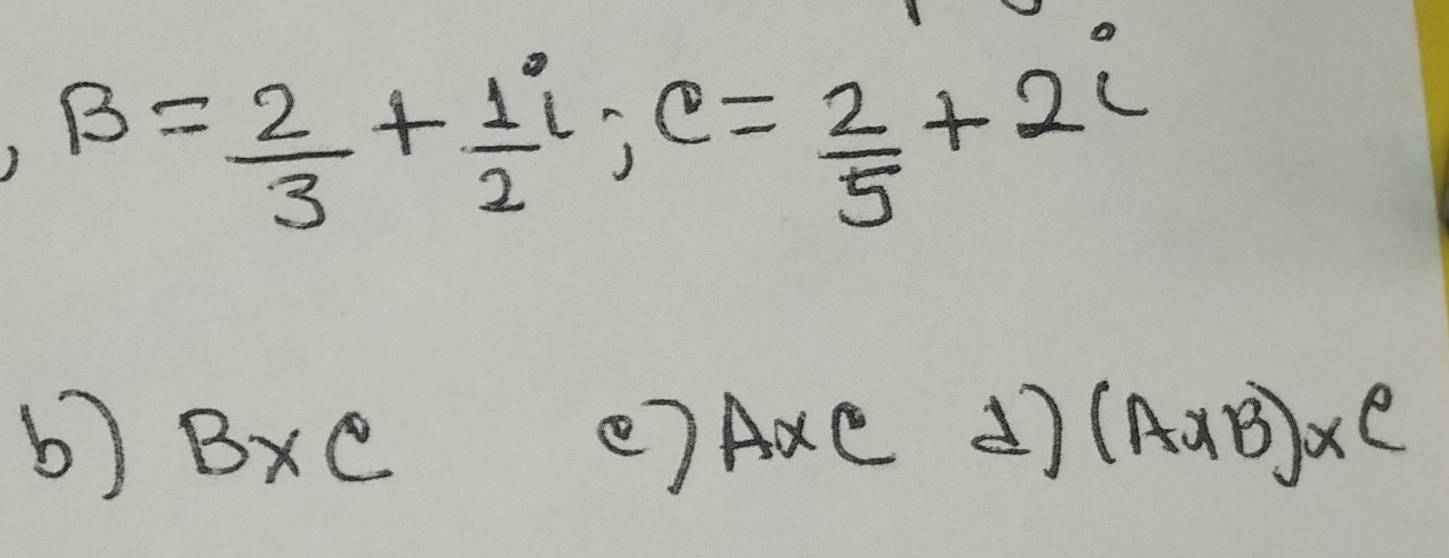 , B = 2/3 + 1/2 i ; C = 2/5 + 2i
b) B x C c) A x C d) (A x B) x C